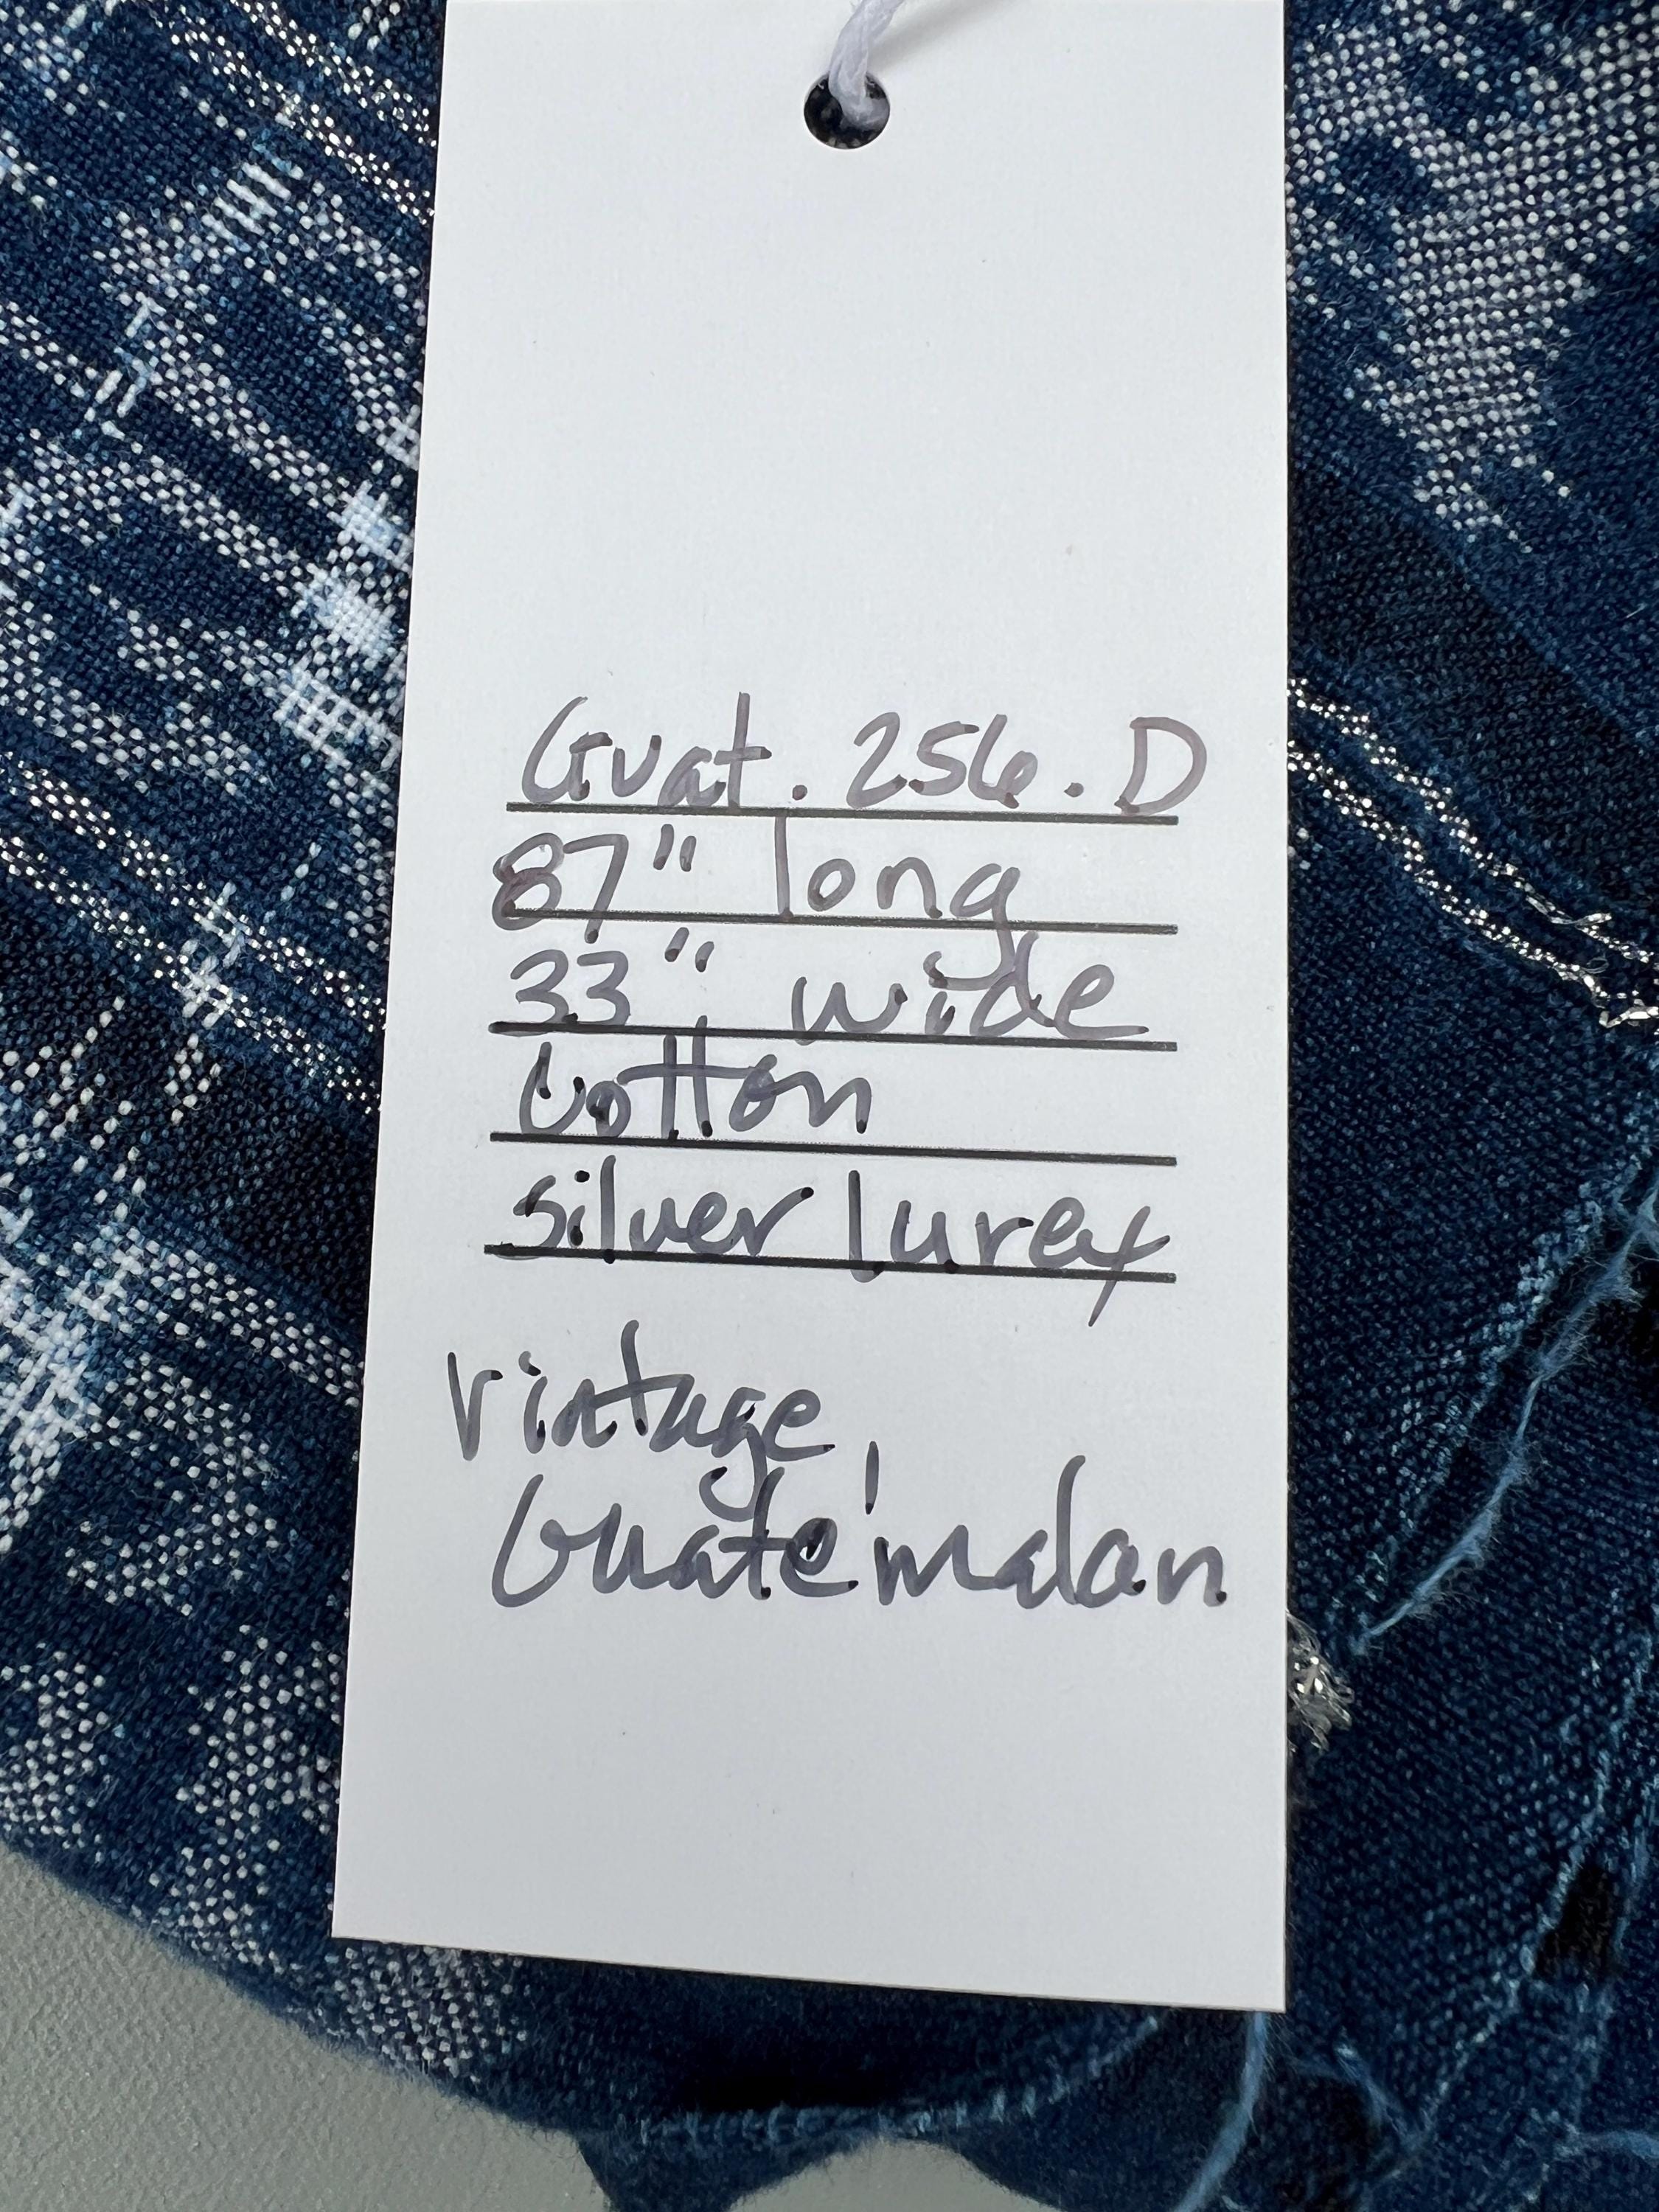 Guat. 256. D
87" long
33" wide
Cotton
Silver lurex
Vintage
Guate'malan